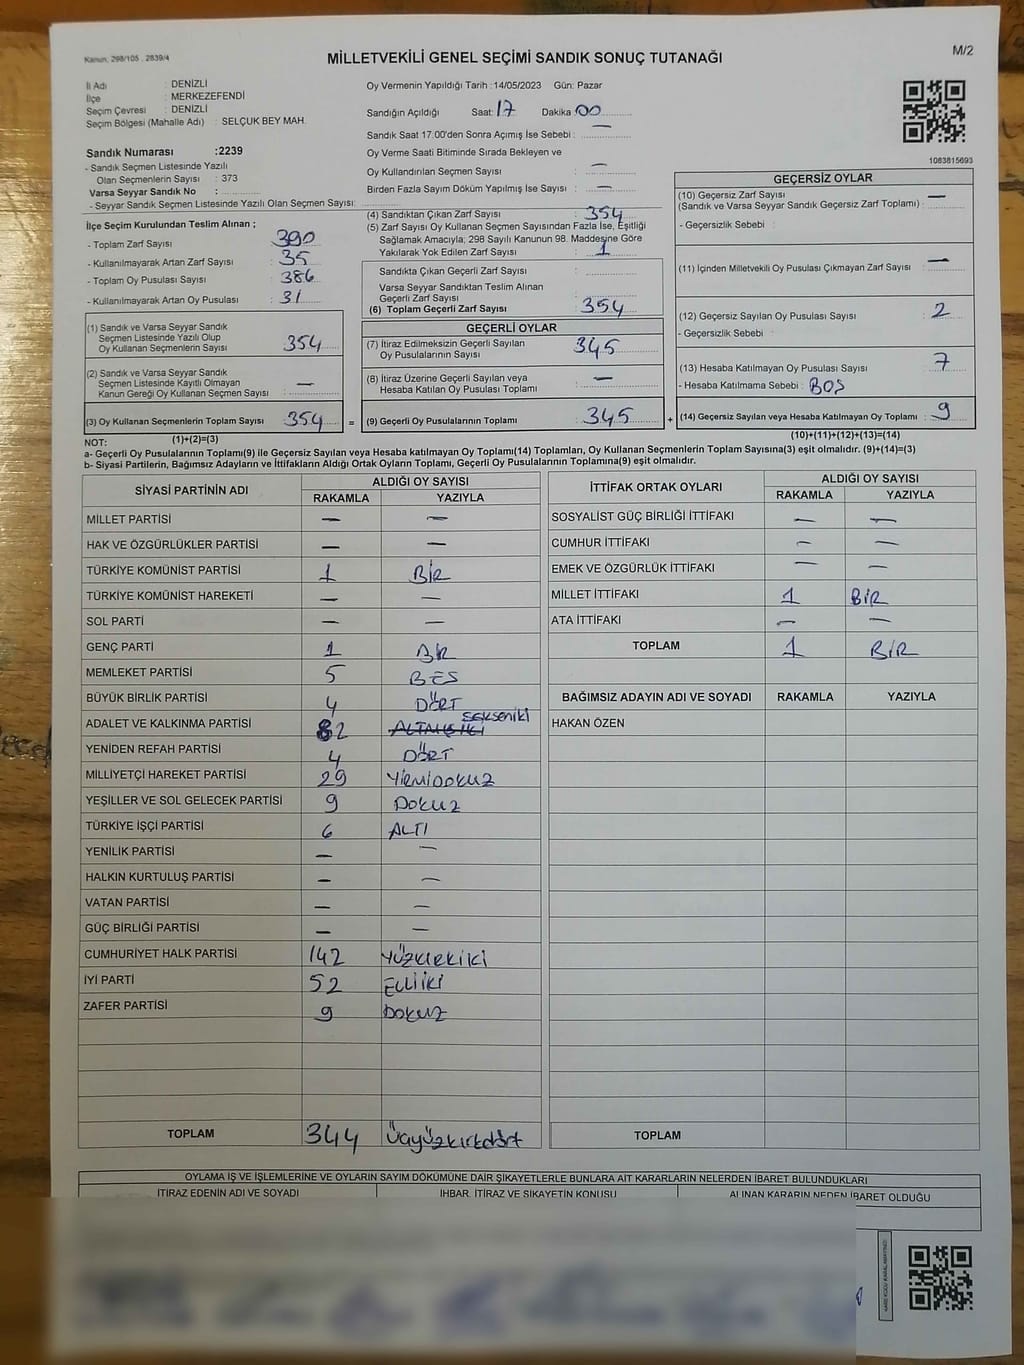 Kanun, 298/105 , 2839/4
MİLLETVEKİLİ GENEL SEÇİMİ SANDIK SONUÇ TUTANAĞI
M/2
İl Adı : DENİZLİ
İlçe : MERKEZEFENDİ
Seçim Çevresi : DENİZLİ
Seçim Bölgesi (Mahalle Adı) : SELÇUK BEY MAH.
Sandık Numarası :2239
- Sandık Seçmen Listesinde Yazılı
Olan Seçmenlerin Sayısı : 373
Varsa Seyyar Sandık No :
- Seyyar Sandık Seçmen Listesinde Yazılı Olan Seçmen Sayısı:
Oy Vermenin Yapıldığı Tarih :14/05/2023 Gün: Pazar
Sandığın Açıldığı Saat: 17 Dakika 00
Sandık Saat 17:00'den Sonra Açımış İse Sebebi : —
Oy Verme Saati Bitiminde Sırada Bekleyen ve
Oy Kullandırılan Seçmen Sayısı : —
Birden Fazla Sayım Döküm Yapılmış İse Sayısı : —
1083815693
İlçe Seçim Kurulundan Teslim Alınan ;
- Toplam Zarf Sayısı : 390
- Kullanılmayarak Artan Zarf Sayısı : 35
- Toplam Oy Pusulası Sayısı : 386
- Kullanılmayarak Artan Oy Pusulası : 31
(1) Sandık ve Varsa Seyyar Sandık
Seçmen Listesinde Yazılı Olup
Oy Kullanan Seçmenlerin Sayısı : 354
(2) Sandık ve Varsa Seyyar Sandık
Seçmen Listesinde Kayıtlı Olmayan
Kanun Gereği Oy Kullanan Seçmen Sayısı : —
(3) Oy Kullanan Seçmenlerin Toplam Sayısı : 354
(1)+(2)=(3)
(4) Sandıktan Çıkan Zarf Sayısı : 354
(5) Zarf Sayısı Oy Kullanan Seçmen Sayısından Fazla İse, Eşitliği
Sağlamak Amacıyla; 298 Sayılı Kanunun 98. Maddesine Göre
Yakılarak Yok Edilen Zarf Sayısı : 1
Sandıkta Çıkan Geçerli Zarf Sayısı :
Varsa Seyyar Sandıktan Teslim Alınan
Geçerli Zarf Sayısı :
(6) Toplam Geçerli Zarf Sayısı : 354
GEÇERLİ OYLAR
(7) İtiraz Edilmeksizin Geçerli Sayılan
Oy Pusulalarının Sayısı : 345
(8) İtiraz Üzerine Geçerli Sayılan veya
Hesaba Katılan Oy Pusulası Toplamı : —
= (9) Geçerli Oy Pusulalarının Toplamı : 345 +
GEÇERSİZ OYLAR
(10) Geçersiz Zarf Sayısı
(Sandık ve Varsa Seyyar Sandık Geçersiz Zarf Toplamı) : —
- Geçersizlik Sebebi :
(11) İçinden Milletvekili Oy Pusulası Çıkmayan Zarf Sayısı : —
(12) Geçersiz Sayılan Oy Pusulası Sayısı : 2
- Geçersizlik Sebebi :
(13) Hesaba Katılmayan Oy Pusulası Sayısı : 7
- Hesaba Katılmama Sebebi : BOŞ
(14) Geçersiz Sayılan veya Hesaba Katılmayan Oy Toplamı : 9
(10)+(11)+(12)+(13)=(14)
NOT:
a- Geçerli Oy Pusulalarının Toplamı(9) ile Geçersiz Sayılan veya Hesaba katılmayan Oy Toplamı(14) Toplamları, Oy Kullanan Seçmenlerin Toplam Sayısına(3) eşit olmalıdır. (9)+(14)=(3)
b- Siyasi Partilerin, Bağımsız Adayların ve İttifakların Aldığı Ortak Oyların Toplamı, Geçerli Oy Pusulalarının Toplamına(9) eşit olmalıdır.
SİYASİ PARTİNİN ADI ALDIĞI OY SAYISI
RAKAMLA YAZIYLA
MİLLET PARTİSİ — —
HAK VE ÖZGÜRLÜKLER PARTİSİ — —
TÜRKİYE KOMÜNİST PARTİSİ 1 BİR
TÜRKİYE KOMÜNİST HAREKETİ — —
SOL PARTİ — —
GENÇ PARTİ 1 BİR
MEMLEKET PARTİSİ 5 BEŞ
BÜYÜK BİRLİK PARTİSİ 4 DÖRT
ADALET VE KALKINMA PARTİSİ 82 ALTMIŞİKİ sekseniki
YENİDEN REFAH PARTİSİ 4 DÖRT
MİLLİYETÇİ HAREKET PARTİSİ 29 YİRMİDOKUZ
YEŞİLLER VE SOL GELECEK PARTİSİ 9 DOKUZ
TÜRKİYE İŞÇİ PARTİSİ 6 ALTI
YENİLİK PARTİSİ — —
HALKIN KURTULUŞ PARTİSİ — —
VATAN PARTİSİ — —
GÜÇ BİRLİĞİ PARTİSİ — —
CUMHURİYET HALK PARTİSİ 142 YÜZKIRKİKİ
İYİ PARTİ 52 ELLİİKİ
ZAFER PARTİSİ 9 DOKUZ
TOPLAM 344 üçyüzkırkdört
İTTİFAK ORTAK OYLARI ALDIĞI OY SAYISI
RAKAMLA YAZIYLA
SOSYALİST GÜÇ BİRLİĞİ İTTİFAKI — —
CUMHUR İTTİFAKI — —
EMEK VE ÖZGÜRLÜK İTTİFAKI — —
MİLLET İTTİFAKI 1 BİR
ATA İTTİFAKI — —
TOPLAM 1 BİR
BAĞIMSIZ ADAYIN ADI VE SOYADI RAKAMLA YAZIYLA
HAKAN ÖZEN
TOPLAM
OYLAMA İŞ VE İŞLEMLERİNE VE OYLARIN SAYIM DÖKÜMÜNE DAİR ŞİKAYETLERLE BUNLARA AİT KARARLARIN NELERDEN İBARET BULUNDUKLARI
İTİRAZ EDENİN ADI VE SOYADI İHBAR, İTİRAZ VE ŞİKAYETİN KONUSU ALINAN KARARIN NEDEN İBARET OLDUĞU